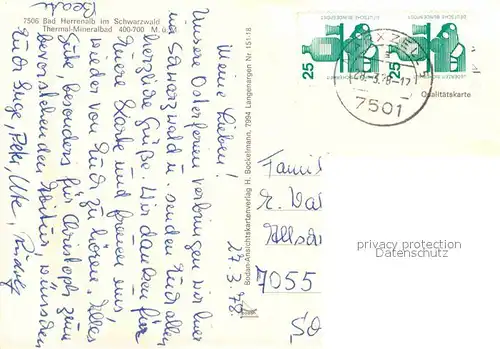 7506 Bad Herrenalb im Schwarzwald
Thermal-Mineralbad 400-700 M. ü.
Beate
Meine Lieben!
Unsere Osterferien verbringen wir hier
im Schwarzwald u. senden Euch allen
herzliche Grüße. Wir danken für
Eure Karte und freuen uns
wieder von Euch zu hören. Alles
Gute, besonders für Christoph zum
bevorstehenden Abitur wünschen
Euch Inge, Peter, Ute,
27.3.78.
Bodan-Ansichtskartenverlag H. Bockelmann, 7994 Langenargen Nr. 151-18
25
DEUTSCHE BUNDESPOST
25
DEUTSCHE BUNDESPOST
28.-3.78-17
7501
Qualitätskarte
Famil
7055
privacy protection
Datenschutz